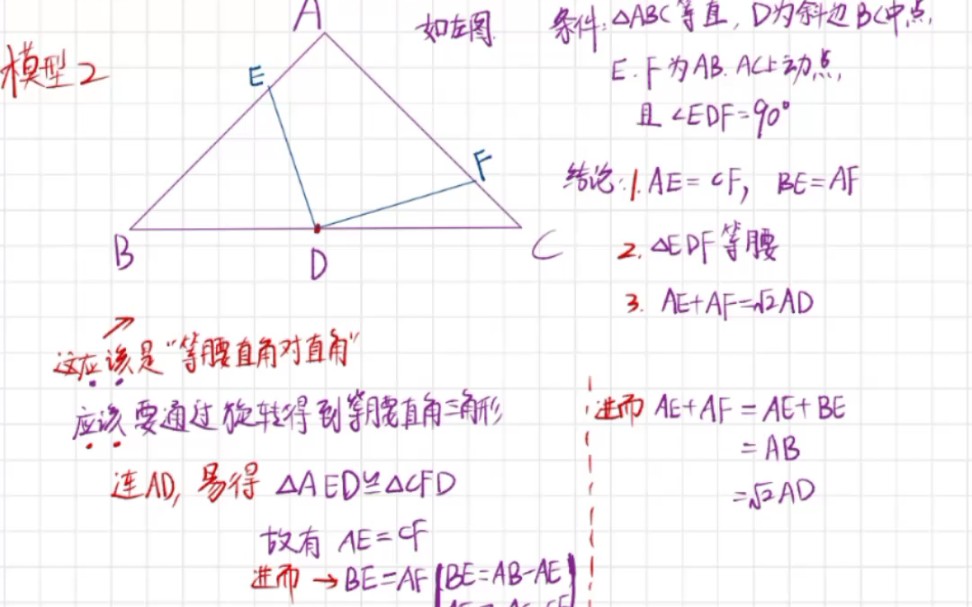 模型2
A
E
F
B
D
C
如左图
条件:△ABC等直,D为斜边BC中点,
E.F为AB.AC上动点,
且∠EDF=90°
结论:1.AE=CF, BE=AF
2.△EDF等腰
3. AE+AF=√2AD
这应该是“等腰直角对直角”
应该要通过旋转得到等腰直角三角形
连AD,易得 △AED≌△CFD
故有 AE=CF
进而→BE=AF[BE=AB-AE]
进而 AE+AF=AE+BE
=AB
=√2AD